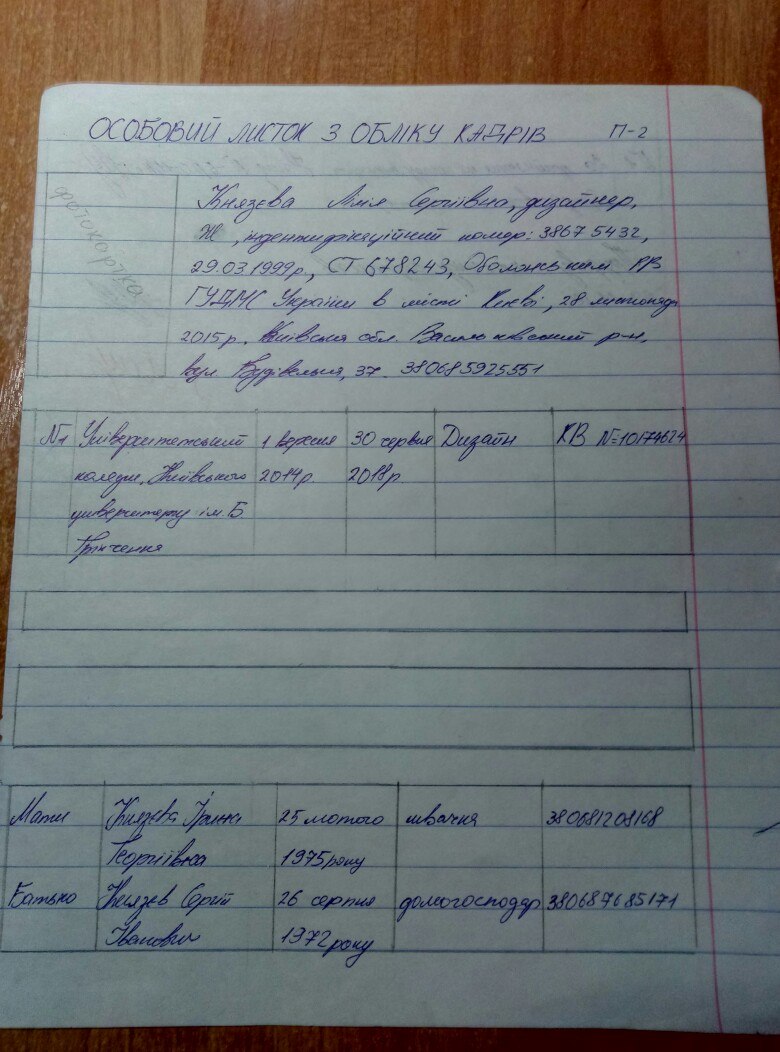 ОСОБОВИЙ ЛИСТОК З ОБЛІКУ КАДРІВ П-2
фотокартка
Князєва Лілія Сергіївна, дизайнер,
Ж, ідентифікаційний номер: 38675432,
29.03.1999р, СТ 678243, Оболонським РВ
ГУДМС України в місті Києві, 28 листопада
2015р, Київська обл. Васильківський р-н,
вул Будівельна, 37. 380685925551
№1 Університетський 1 вересня 30 червня Дизайн КВ №10174624
коледж, Київського 2014р. 2018р.
університету ім. Б.
Грінченка
Мати Князєва Ірина 25 лютого швачка 380681208168
Георгіївна 1975року
Батько Князєв Сергій 26 серпня домогосподар 380687685171
Іванович 1972року